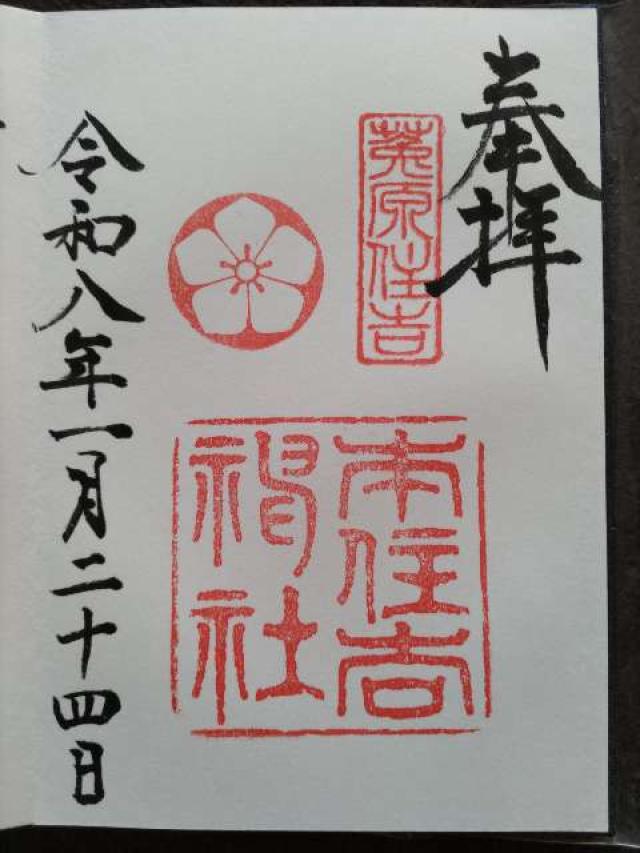 奉拝
菟原住吉
本住吉
神社
令和八年一月二十四日